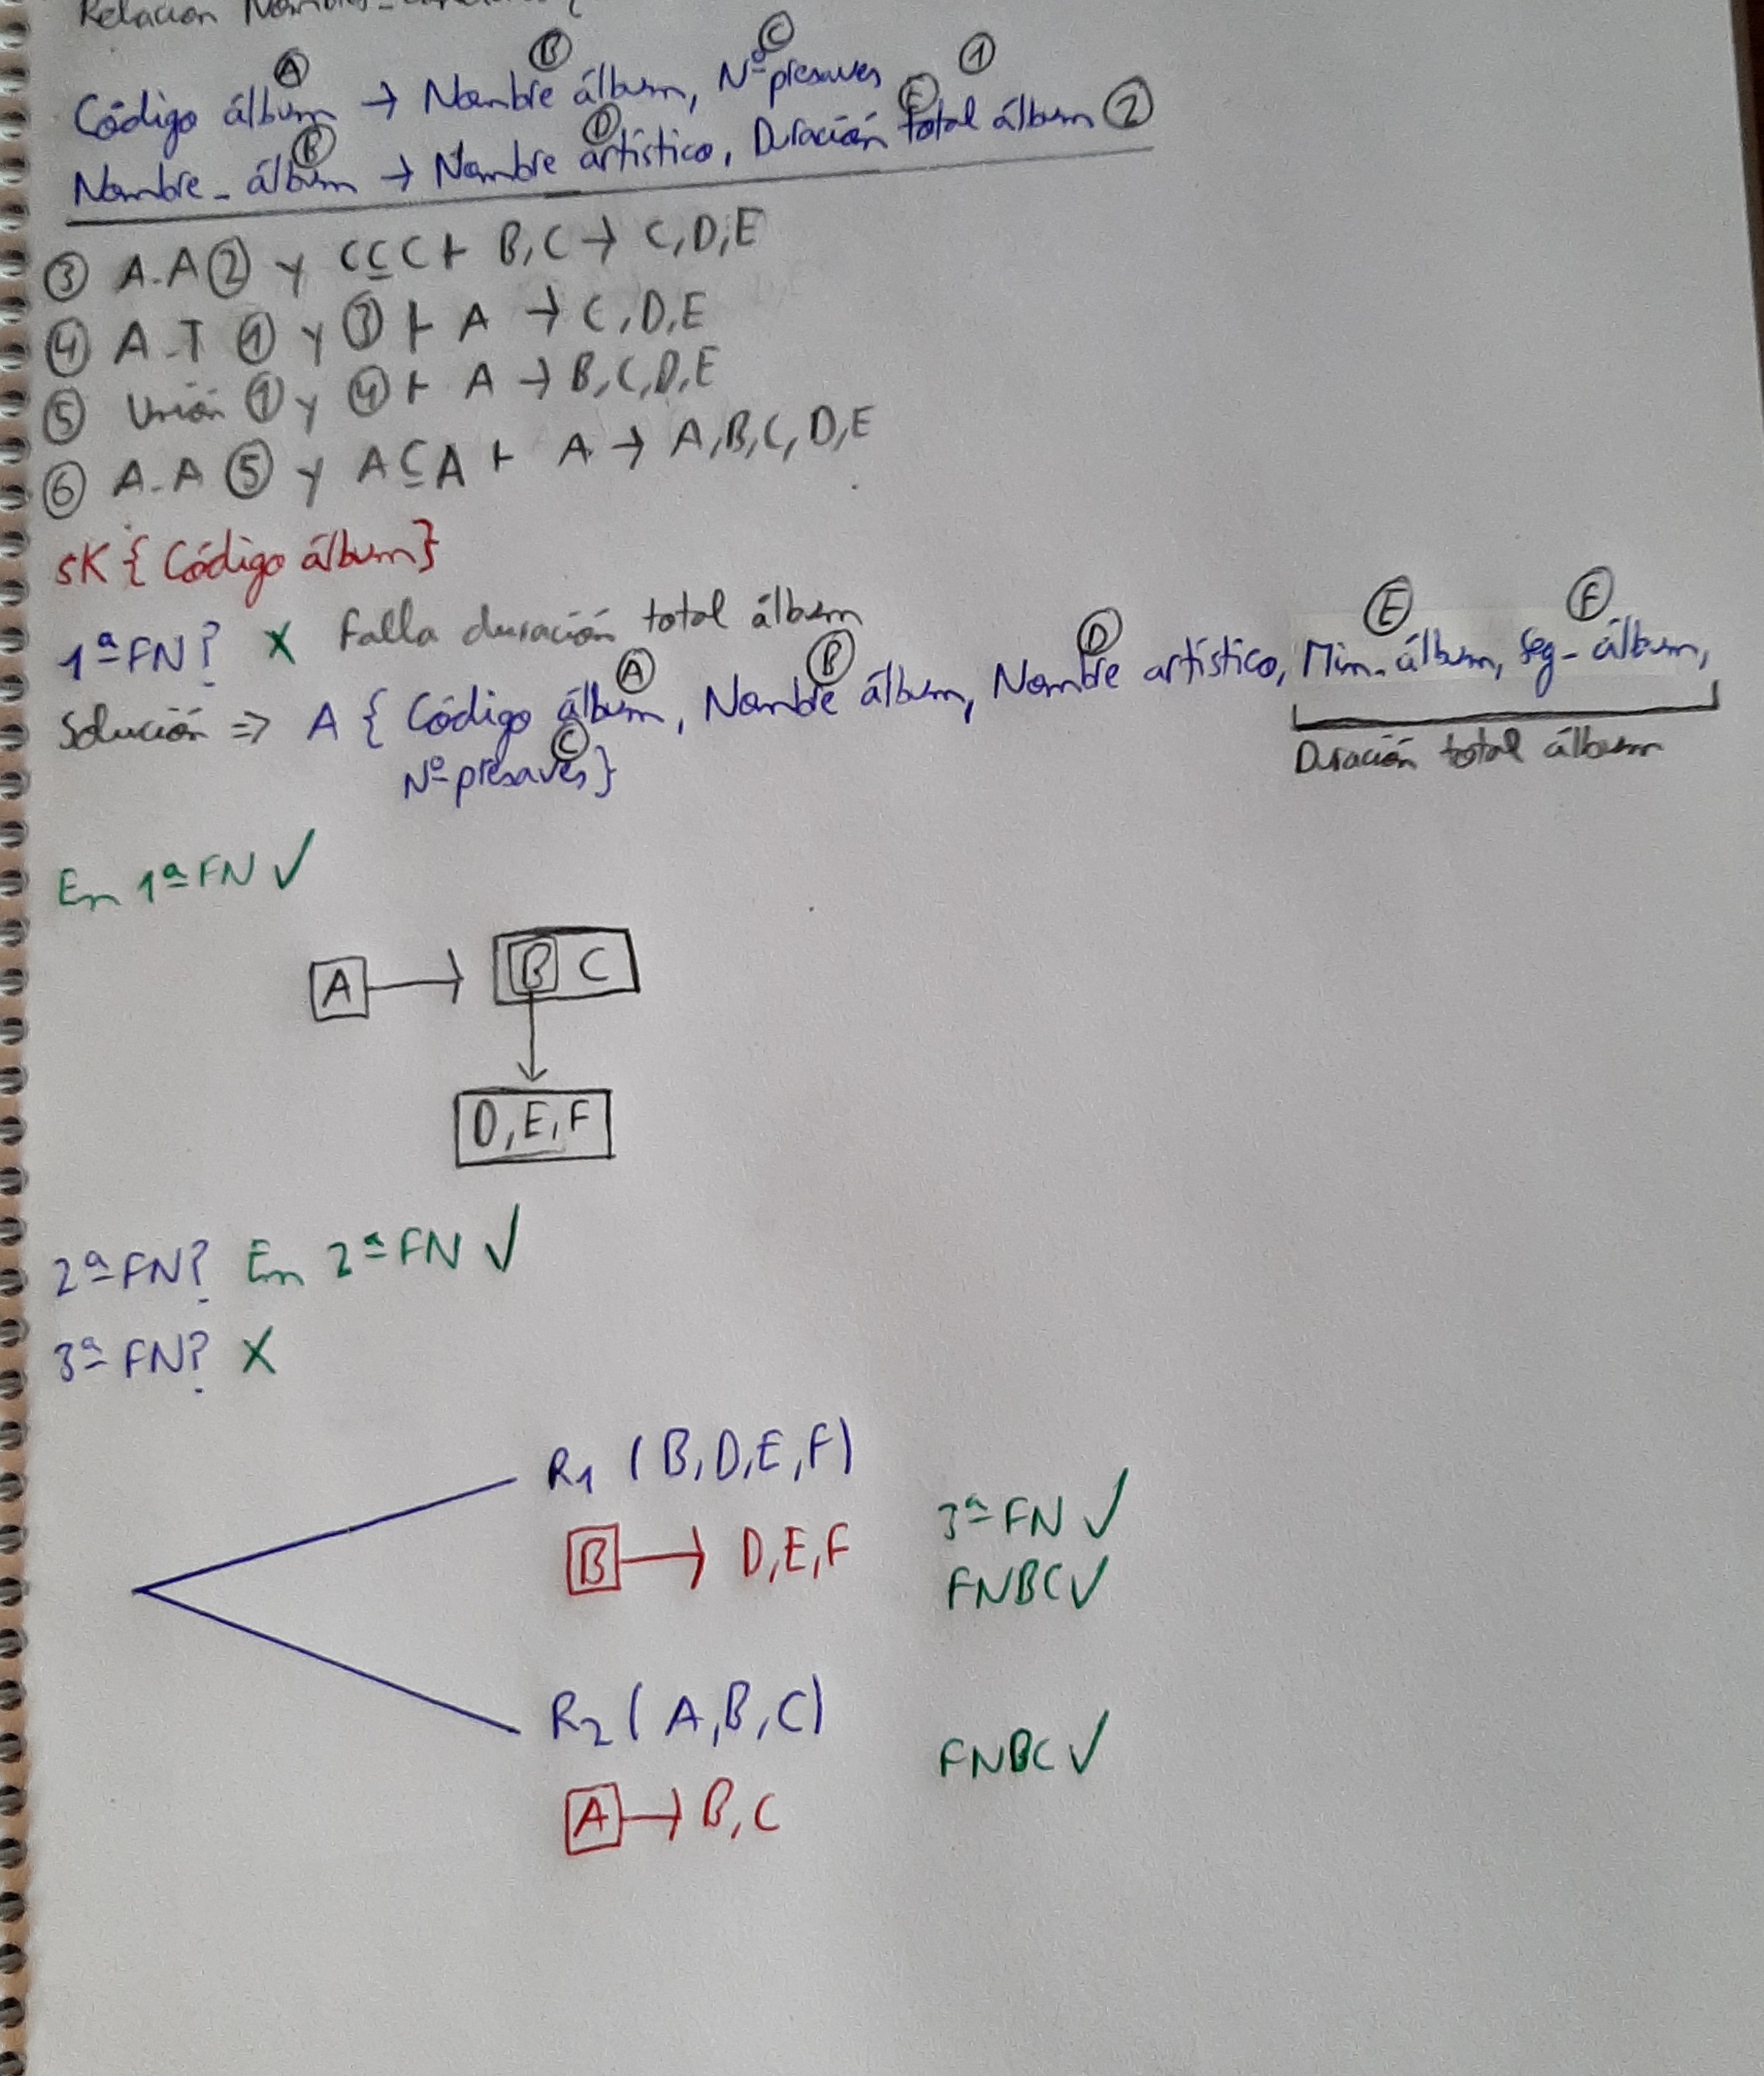 Relación
Ⓐ Ⓑ Ⓒ ①
Código álbum → Nombre álbum, Nº presaves
Ⓑ Ⓓ Ⓔ
Nombre_álbum → Nombre artístico, Duración total álbum ②
③ A.A ② y C⊆C ⊢ B,C → C,D,E
④ A.T ① y ③ ⊢ A → C,D,E
⑤ Unión ① y ④ ⊢ A → B,C,D,E
⑥ A.A ⑤ y A⊆A ⊢ A → A,B,C,D,E
SK { Código álbum}
1ªFN? X Falla duración total álbum
Ⓐ Ⓑ Ⓓ Ⓔ Ⓕ
Solución ⇒ A { Código álbum, Nombre álbum, Nombre artístico, Min_álbum, Seg_álbum,
Ⓒ
Nº presaves}
Duración total álbum
En 1ªFN ✓
A → B C
D,E,F
2ªFN? En 2ªFN ✓
3ªFN? X
R1 (B,D,E,F)
B → D,E,F
3ªFN ✓
FNBC ✓
R2 (A,B,C)
FNBC ✓
A → B,C